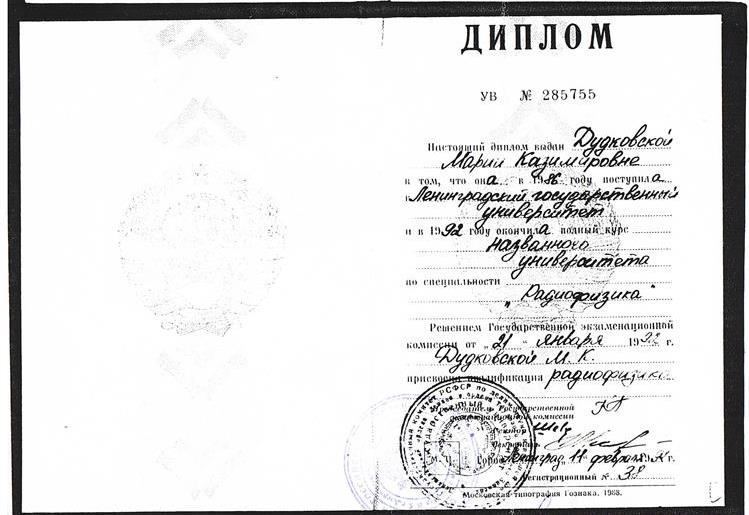 ДИПЛОМ
УВ № 285755
Настоящий диплом выдан Дудковской
Марии Казимировне
в том, что она в 1986 году поступила
в Ленинградский государственный
университет
и в 1992 году окончила полный курс
названного
университета
по специальности
„Радиофизика“
Решением Государственной экзаменационной
комиссии от „21“ января 1992 г.
Дудковской М. К.
присвоена квалификация радиофизика
Председатель Государственной
экзаменационной комиссии
Ректор
Секретарь
М. П. Город Ленинград, 11 февраля г.
Регистрационный № 38
Московская типография Гознака. 1988.